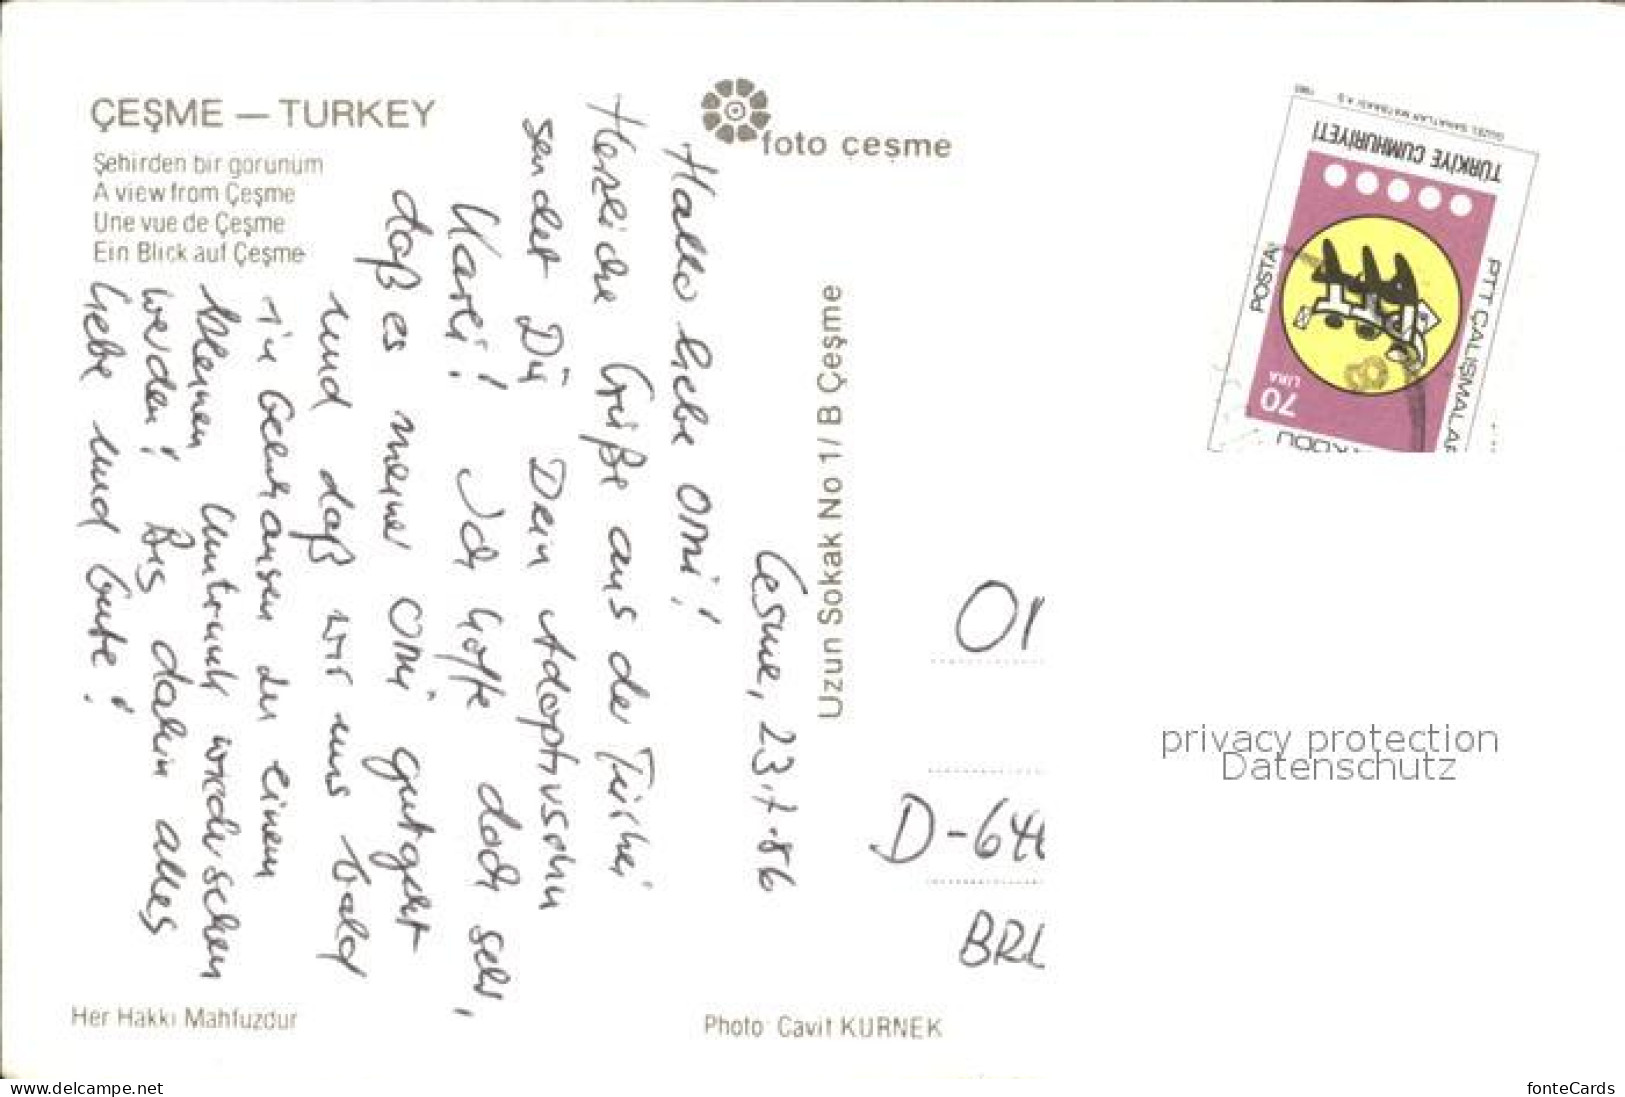 ÇEŞME — TURKEY
Şehirden bir gorunum
A view from Çeşme
Une vue de Çeşme
Ein Blick auf Çeşme
foto çeşme
Cesme, 23.7.86
Hallo liebe Omi!
Herzliche Grüße aus de Türkei
sendet Dir Dein Adoptivsohn
Karli! Ich hoffe doch sehr,
daß es meiner Omi gutgeht
und daß wir uns bald
in Gelnhausen zu einem
kleinen Umtrunk wiedersehen
werden! Bis dahin alles
Liebe und Gute!
Uzun Sokak No 1/B Çeşme
Her Hakkı Mahfuzdur
Photo: Cavit KURNEK
D-64
BRD
1985
GÜZEL SANATLAR MATBAASI A.Ş.
TÜRKİYE CUMHURİYETİ
POSTA
PTT ÇALIŞMALAR
70
LIRA
privacy protection
Datenschutz
www.delcampe.net
fonteCards